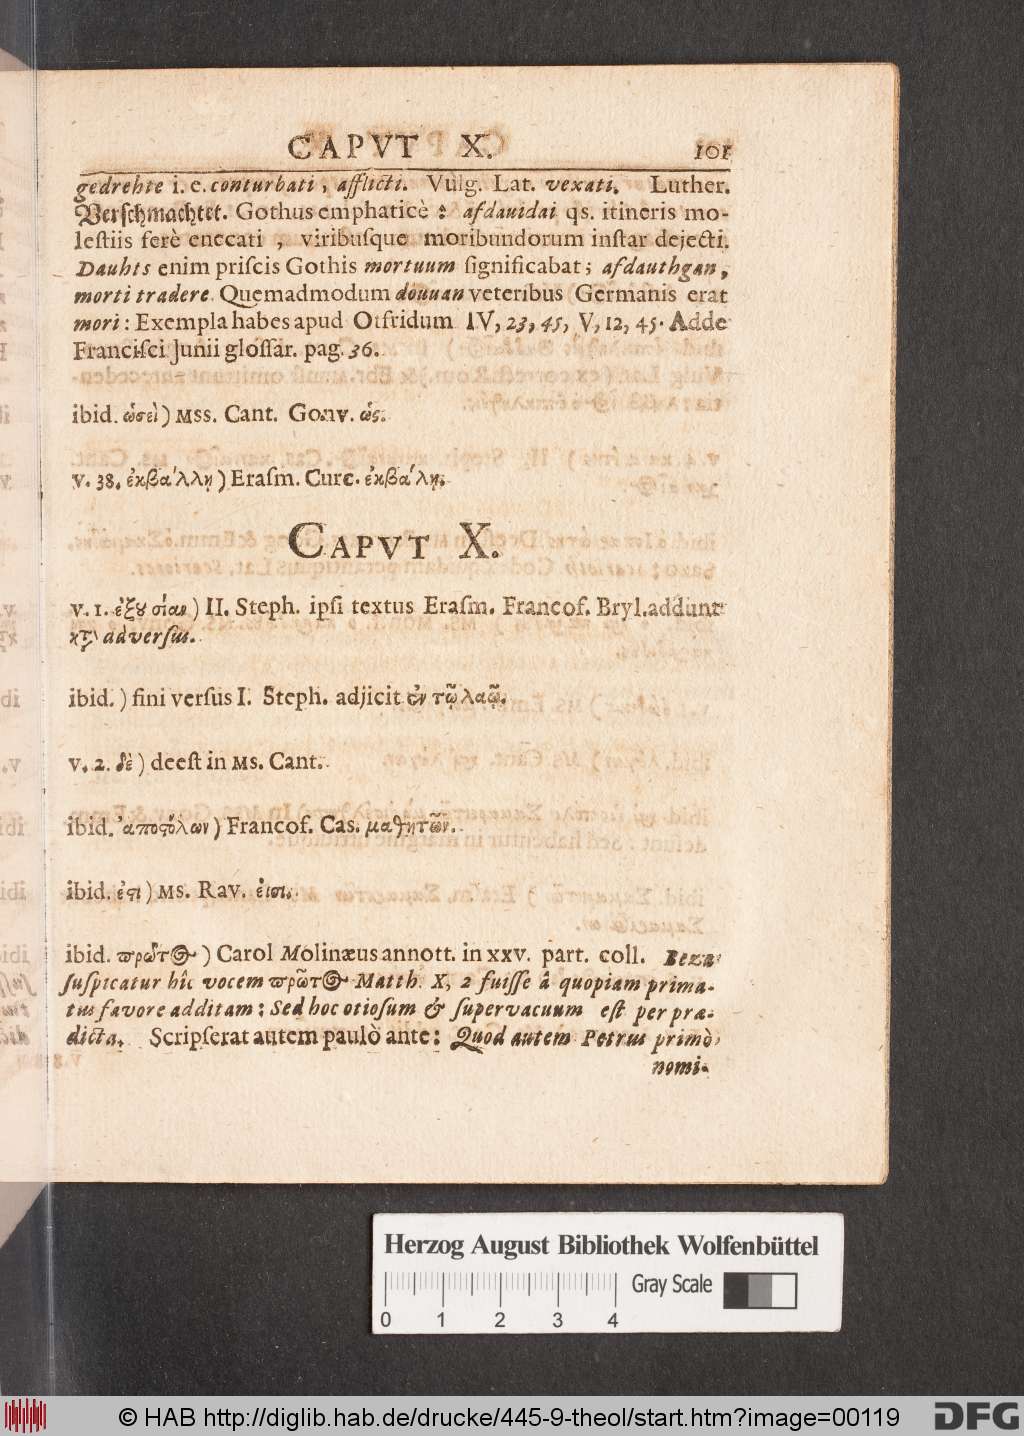 CAPVT X. 101
gedrehte i. e. conturbati, afflicti. Vulg. Lat. vexati. Luther.
Verſchmachtet. Gothus emphaticè: afdauidai qs. itineris mo-
leſtiis ferè enecati, viribuſque moribundorum inſtar dejecti.
Dauhts enim priſcis Gothis mortuum ſignificabat; afdauthgan,
morti tradere. Quemadmodum douuan veteribus Germanis erat
mori: Exempla habes apud Otfridum IV, 23, 45, V, 12, 45. Adde
Franciſci Junii gloſſar. pag. 36.
ibid. ὡσεὶ) Mss. Cant. Gonv. ὡς.
v. 38. ἐκβάλλῃ) Eraſm. Curc. ἐκβάλῃ.
CAPVT X.
v. 1. ἐξουσίαν) II. Steph. ipſi textus Eraſm. Francof. Bryl. addunt
κατ adverſus.
ibid.) fini verſus I. Steph. adjicit ἐν τῷ λαῷ.
v. 2. δὲ) deeſt in Ms. Cant.
ibid. ἀποστόλων) Francof. Caſ. μαθητῶν.
ibid. ἐστι) Ms. Rav. εἰσι.
ibid. πρῶτος) Carol Molinæus annott. in xxv. part. coll. Beza
ſuſpicatur hîc vocem πρῶτος Matth. X, 2 fuiſſe à quopiam prima-
tus favore additam: Sed hoc otioſum & ſupervacuum eſt per præ-
dicta. Scripſerat autem paulò ante: Quod autem Petrus primò
nomi-
Herzog August Bibliothek Wolfenbüttel
Gray Scale
0 1 2 3 4
© HAB http://diglib.hab.de/drucke/445-9-theol/start.htm?image=00119
DFG